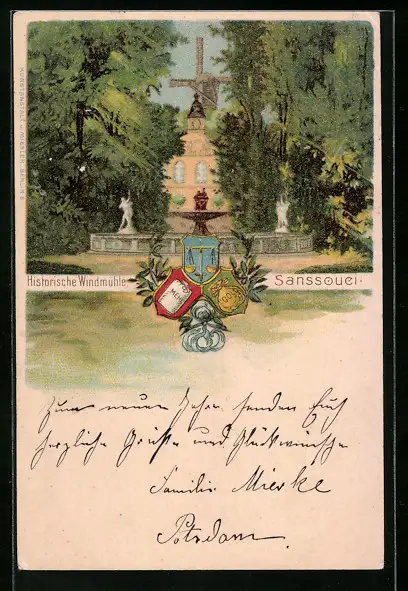 KUNSTANSTALT J. MIESLER, BERLIN S.
Historische Windmühle
Sanssouci.
MEHL
Zum neuen Jahre senden Euch
herzliche Grüße und Glückwünsche
Familie Mierke
Potsdam.